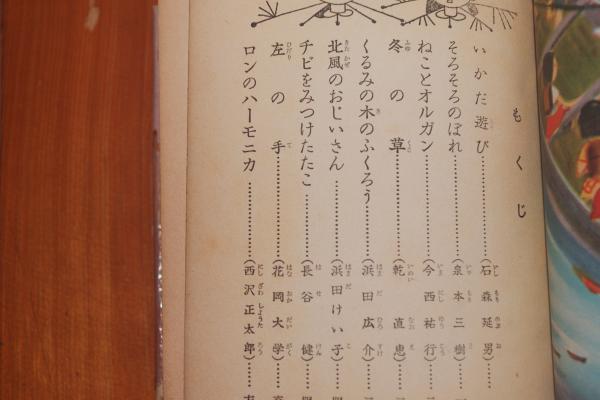 もくじ
いかだ遊び…………(石森延男)……
そろそろのぼれ…………(泉本三樹)……
ねことオルガン…………(今西祐行)……
冬の草…………(乾直恵)……
くるみの木のふくろう…………(浜田広介)……
北風のおじいさん…………(浜田けい子)……
チビをみつけたたこ…………(長谷健)……
左の手…………(花岡大学)……
ロンのハーモニカ…………(西沢正太郎)……